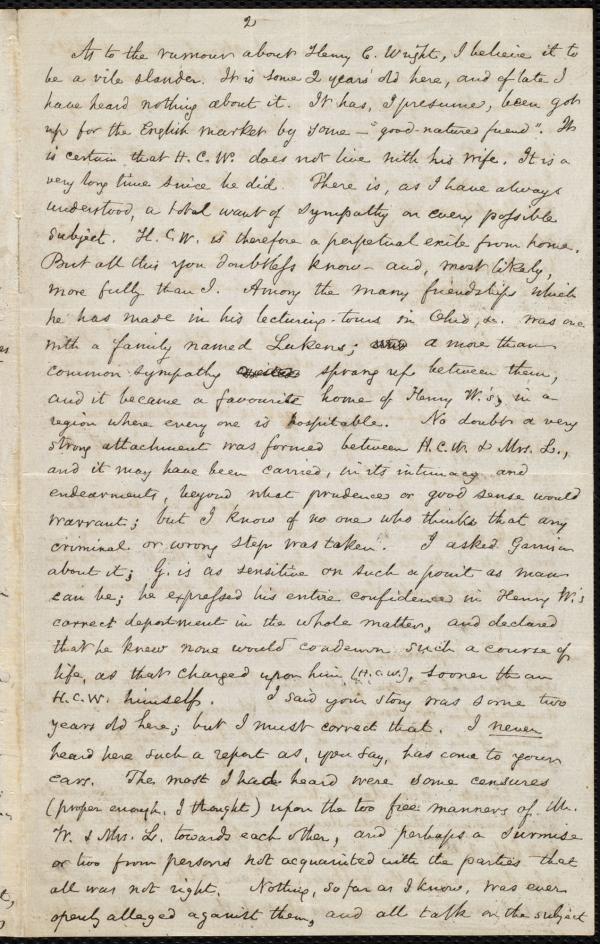 2
As to the rumour about Henry C. Wright, I believe it to
be a vile slander. It is some 2 years' old here, and of late I
have heard nothing about it. It has, I presume, been got
up for the English market by some — "good-natured friend". It
is certain that H. C. W. does not live with his wife. It is a
very long time since he did. There is, as I have always
understood, a total want of sympathy on every possible
subject. H. C. W. is therefore a perpetual exile from home.
But all this you doubtless know – and, most likely,
more fully than I. Among the many friendships which
he has made in his lecturing-tours in Ohio, &c. was one
with a family named Lukens; a more than
common sympathy sprang up between them,
and it became a favourite home of Henry W.'s, in a
region where every one is hospitable. No doubt a very
strong attachment was formed between H.C.W. & Mrs. L.,
and it may have been carried, in its intimacy and
endearments, beyond what prudence or good sense would
warrant; but I know of no one who thinks that any
criminal or wrong step was taken. I asked Garrison
about it; G. is as sensitive on such a point as man
can be; he expressed his entire confidence in Henry W.'s
correct deportment in the whole matter, and declared
that he knew none would condemn such a course of
life, as that charged upon him (H.C.W.), sooner than
H.C.W. himself. I said your story was some two
years old here; but I must correct that. I never
heard here such a report as, you say, has come to your
ears. The most I had heard were some censures
(proper enough, I thought) upon the too free manners of Mr.
W. & Mrs. L. towards each other, and perhaps a surmise
or two from persons not acquainted with the parties that
all was not right. Nothing, so far as I know, was ever
openly alleged against them, and all talk on the subject